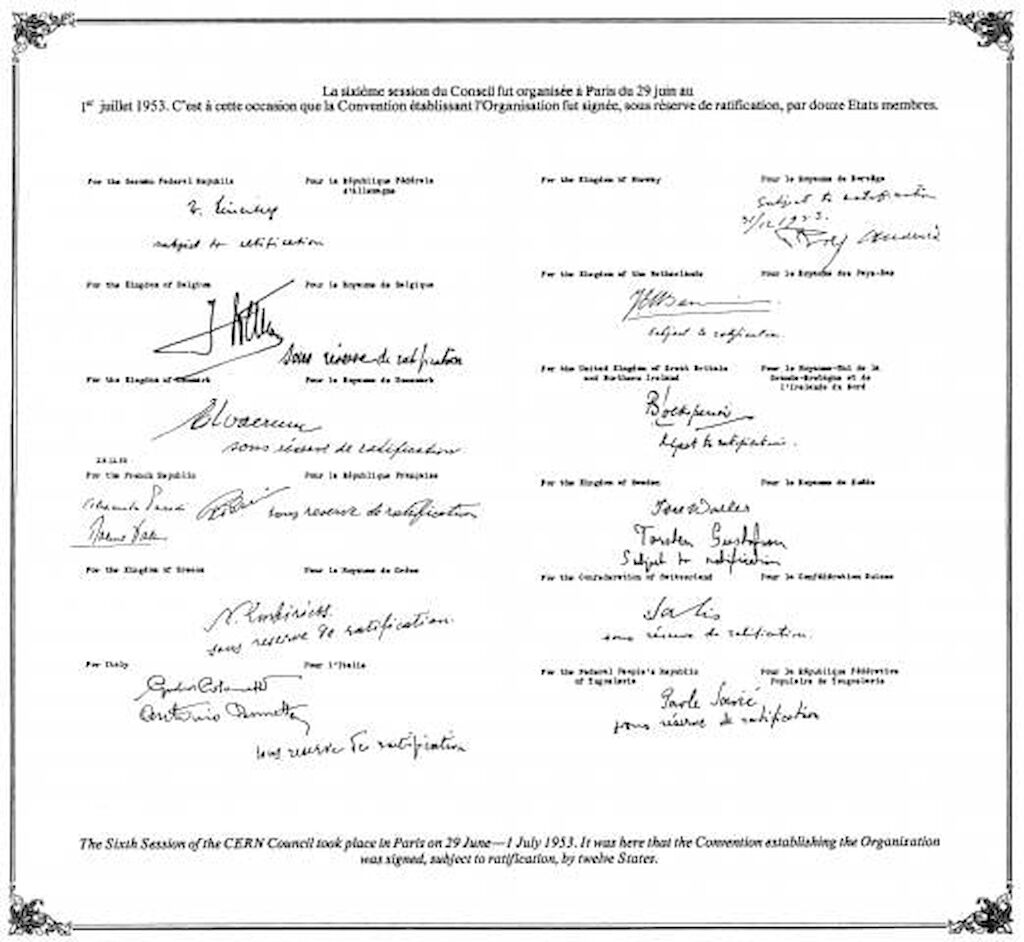 La sixième session du Conseil fut organisée à Paris du 29 juin au
1er juillet 1953. C'est à cette occasion que la Convention établissant l'Organisation fut signée, sous réserve de ratification, par douze Etats membres.
For the German Federal Republic
Pour la République Fédérale
d'Allemagne
subject to ratification
For the Kingdom of Belgium
Pour le Royaume de Belgique
sous réserve de ratification
For the Kingdom of Denmark
Pour le Royaume de Danemark
sous réserve de ratification
For the French Republic
Pour la République Française
sous reserve de ratification
For the Kingdom of Greece
Pour le Royaume de Grèce
sous reserve de ratification
For Italy
Pour l'Italie
sous reserve de ratification
For the Kingdom of Norway
Pour le Royaume de Norvège
Subject to ratification
31/12 1953.
For the Kingdom of the Netherlands
Pour le Royaume des Pays-Bas
subject to ratification.
For the United Kingdom of Great Britain
and Northern Ireland
Pour le Royaume-Uni de la
Grande-Bretagne et de
l'Irelande du Nord
subject to ratification.
For the Kingdom of Sweden
Pour le Royaume de Suède
Torsten Gustafson
Subject to ratification
For the Confederation of Switzerland
Pour la Confédération Suisse
sous réserve de ratification.
For the Federal People's Republic
of Yugoslavia
Pour la République Fédérative
Populaire de Yougoslavie
Pavle Savić
sous réserve de ratification
The Sixth Session of the CERN Council took place in Paris on 29 June—1 July 1953. It was here that the Convention establishing the Organization
was signed, subject to ratification, by twelve States.